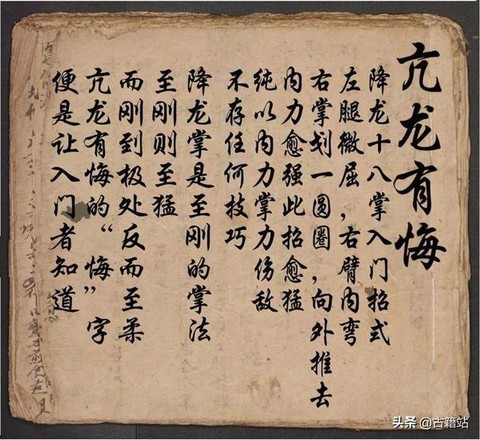 亢龙有悔
降龙十八掌入门招式
左腿微屈，右臂内弯
右掌划一圆圈，向外推去
内力愈强此招愈猛
纯以内力掌力伤敌
不存任何技巧
降龙掌是至刚的掌法
至刚则至猛
而刚到极处反而至柔
亢龙有悔的“悔”字
便是让入门者知道
头条@古籍站